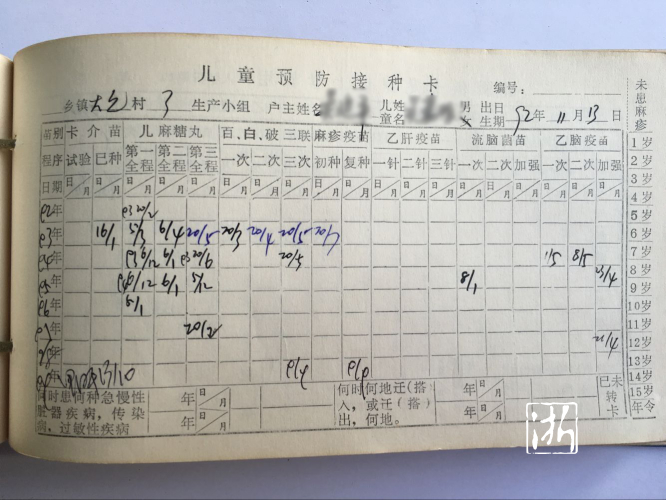 儿童预防接种卡
编号：
乡镇 村 3 生产小组 户主姓名 儿姓童名 男女 出日生期 92年 11月 13日
苗别 卡介苗 儿麻糖丸 百、白、破三联 麻疹疫苗 乙肝疫苗 流脑菌苗 乙脑疫苗
程序 试验 已种 第一全程 第二全程 第三全程 一次 二次 三次 初种 复种 一针 二针 三针 一次 二次 加强 一次 二次 加强
日期 日/月 日/月 日/月 日/月 日/月 日/月 日/月 日/月 日/月 日/月 日/月 日/月 日/月 日/月 日/月 日/月 日/月 日/月 日/月
92年
93年 16/1 5/3 6/4 20/5 20/3 20/4 20/5 20/7
94年 6/1 20/5 1/5 8/5
95年 6/1 5/12 8/1 23/4
96年 5/1
97年 20/2
98年 21/4
年 13/10
何时患何种急慢性脏器疾病，传染病，过敏性疾病
年 日/月 年 日/月
年 年
何时何地迁(搭)入，或迁(搭)出，何地。
年 日/月 年 日/月
年 年
未患麻疹
1岁
2岁
3岁
4岁
5岁
6岁
7岁
8岁
9岁
10岁
11岁
12岁
13岁
14岁
15岁
已未转卡
年令
浙